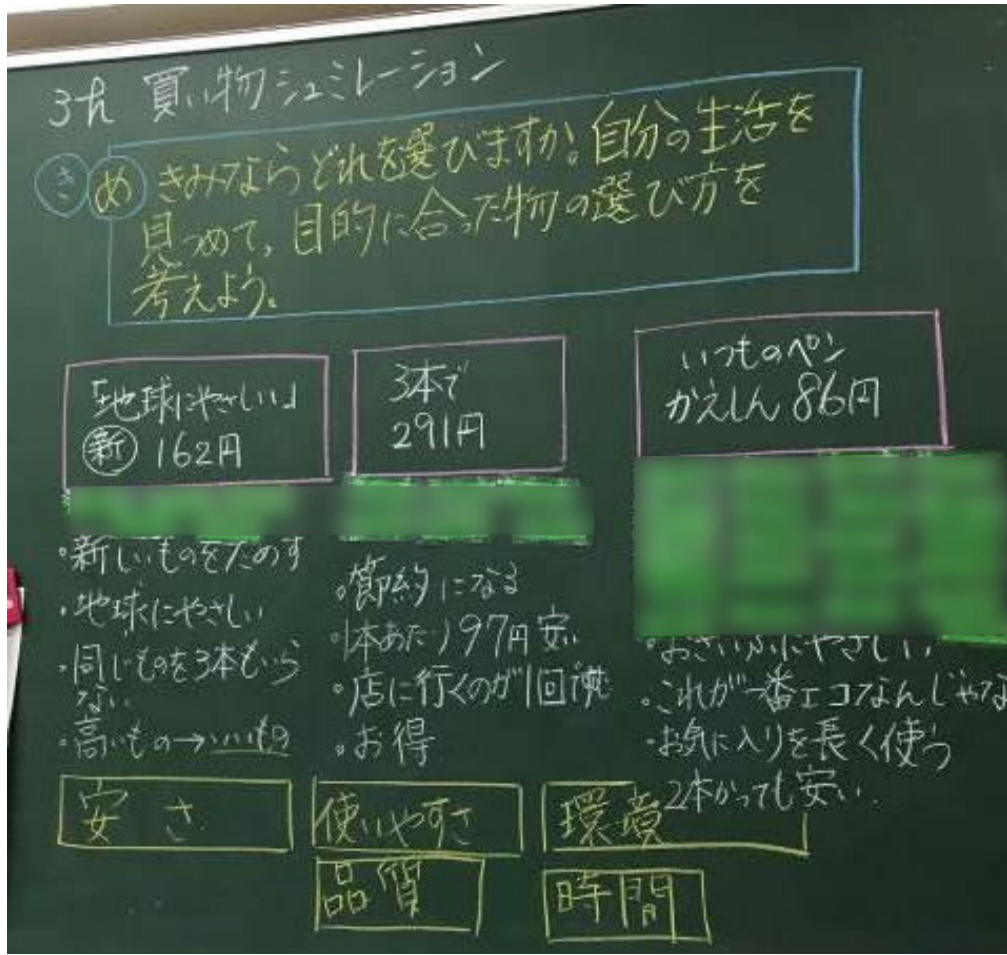 3h 買い物シュミレーション
き め きみならどれを選びますか。自分の生活を
見つめて、目的に合った物の選び方を
考えよう。
「地球にやさしい」
新 162円
3本で
291円
いつものペン
かえしん 86円
・新しいものをためす
・地球にやさしい
・同じものを3本もいら
ない
・高いもの→いいもの
・節約になる
・1本あたり97円 安い
・店に行くのが1回で済む
・お得
・おさいふにやさしい
・これが一番エコなんじゃな
・お気に入りを長く使う
2本かっても安い.
安さ
使いやすさ
環境
品質
時間